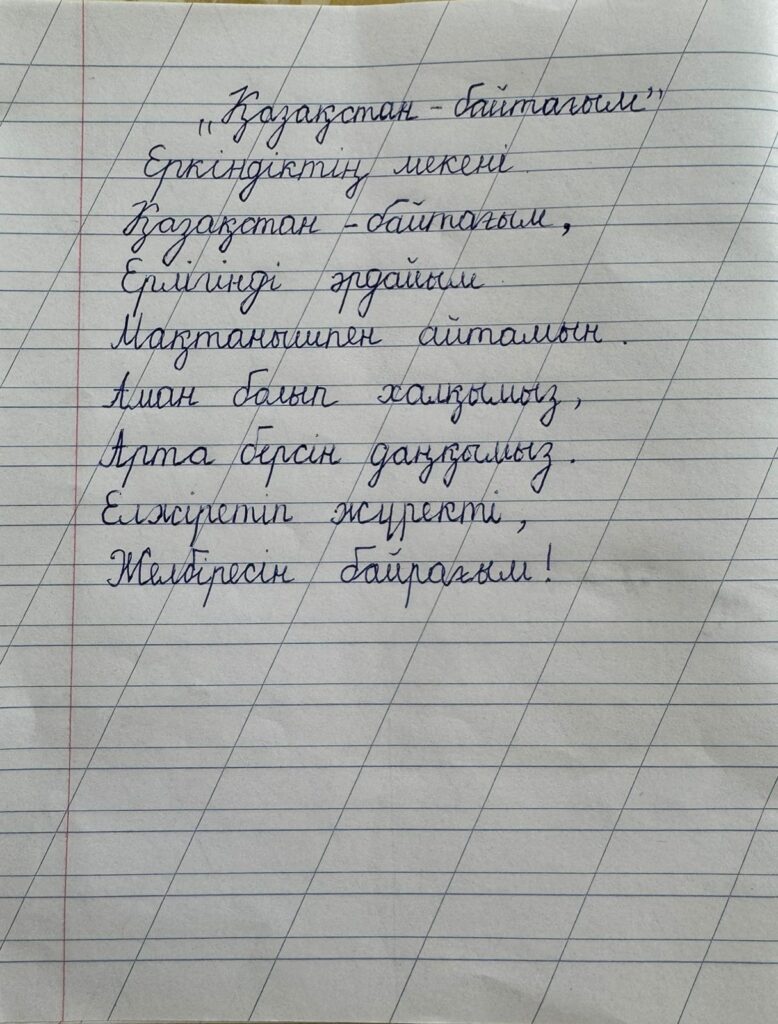 „Қазақстан - байтағым”
Еркіндіктің мекені
Қазақстан - байтағым,
Ерлігінді әрдайым
Мақтанышпен айтамын.
Аман болып халқымыз,
Арта берсін даңқымыз.
Елжіретіп жүректі,
Желбіресін байрағым!